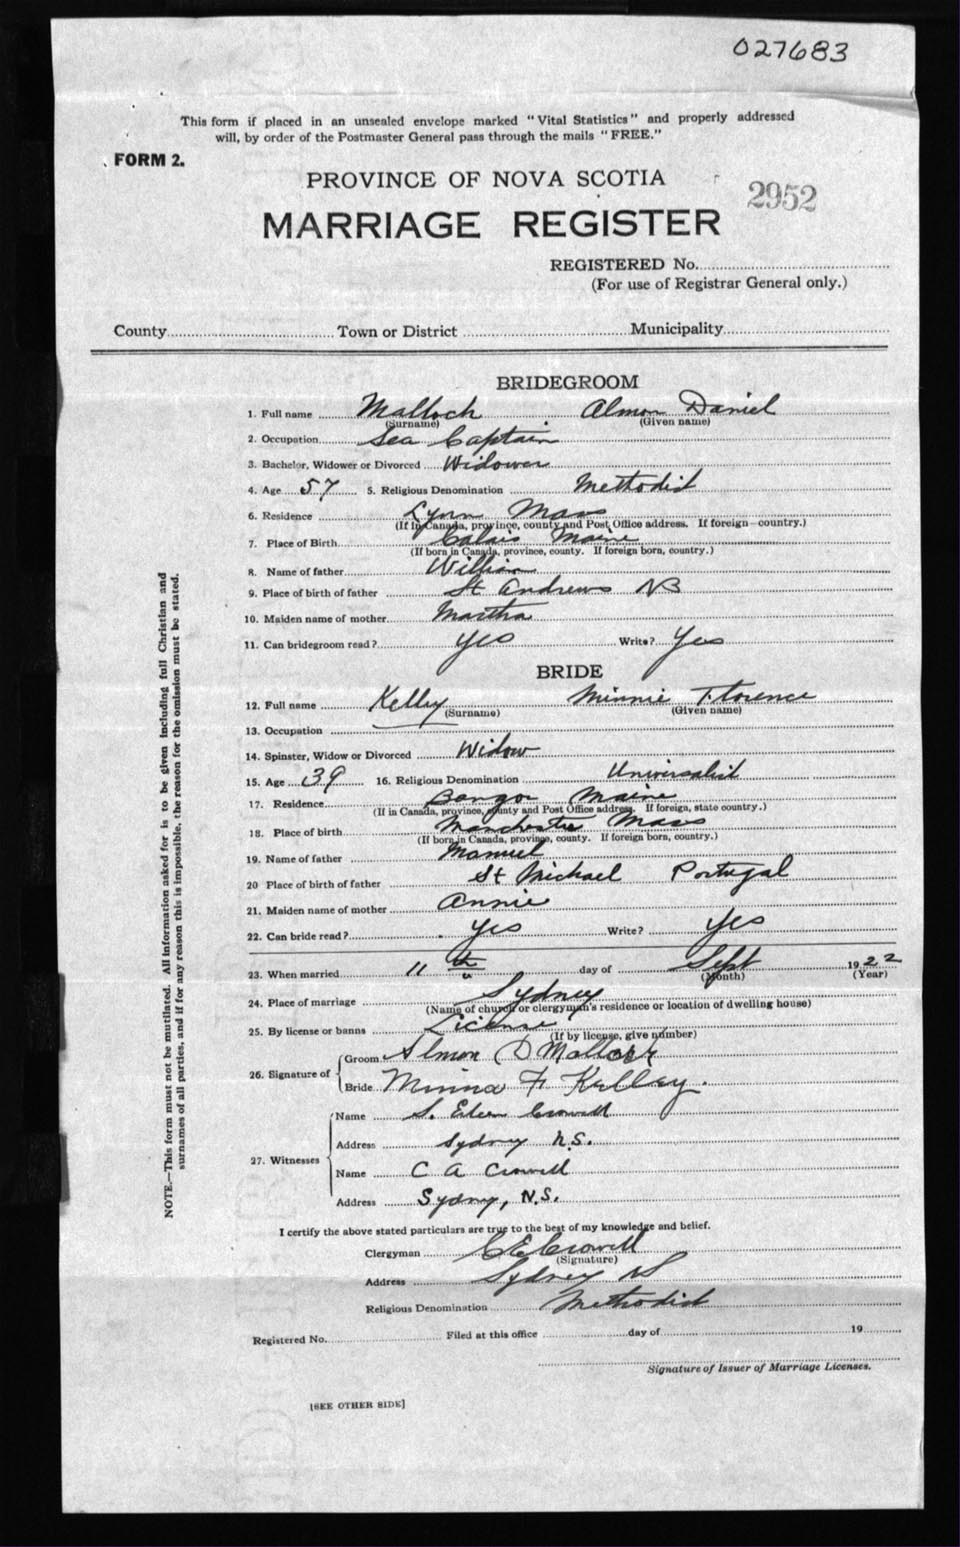 027683
This form if placed in an unsealed envelope marked "Vital Statistics" and properly addressed
will, by order of the Postmaster General pass through the mails "FREE."
FORM 2.
PROVINCE OF NOVA SCOTIA
2952
MARRIAGE REGISTER
REGISTERED No.
(For use of Registrar General only.)
County Town or District Municipality
BRIDEGROOM
1. Full name Malloch Almon Daniel
(Surname) (Given name)
2. Occupation Sea Captain
3. Bachelor, Widower or Divorced Widower
4. Age 57 5. Religious Denomination Methodist
6. Residence Lynn Mass
(If in Canada, province, county and Post Office address. If foreign—country.)
7. Place of Birth Calais Maine
(If born in Canada, province, county. If foreign born, country.)
8. Name of father William
9. Place of birth of father St Andrews NB
10. Maiden name of mother Martha
11. Can bridegroom read? Yes Write? Yes
BRIDE
12. Full name Kelley Minnie Florence
(Surname) (Given name)
13. Occupation
14. Spinster, Widow or Divorced Widow
15. Age 39 16. Religious Denomination Universalist
17. Residence Bangor Maine
(If in Canada, province, county and Post Office address. If foreign, state country.)
18. Place of birth Manchester Mass
(If born in Canada, province, county. If foreign born, country.)
19. Name of father Manuel
20 Place of birth of father St Michael Portugal
21. Maiden name of mother Annie
22. Can bride read? Yes Write? Yes
23. When married 11th day of Sept 1922
(Month) (Year)
24. Place of marriage Sydney
(Name of church or clergyman's residence or location of dwelling house)
25. By license or banns License
(If by license, give number)
26. Signature of Groom Almon D Malloch
Bride Minna F Kelley.
27. Witnesses Name S. Crowell
Address Sydney N.S.
Name C A Crowell
Address Sydney, N.S.
I certify the above stated particulars are true to the best of my knowledge and belief.
Clergyman C E Crowell
(Signature)
Address Sydney NS
Religious Denomination Methodist
Registered No. Filed at this office day of 19
Signature of Issuer of Marriage Licenses.
[SEE OTHER SIDE]
NOTE.—This form must not be mutilated. All information asked for is to be given including full Christian and
surnames of all parties, and if for any reason this is impossible, the reason for the omission must be stated.